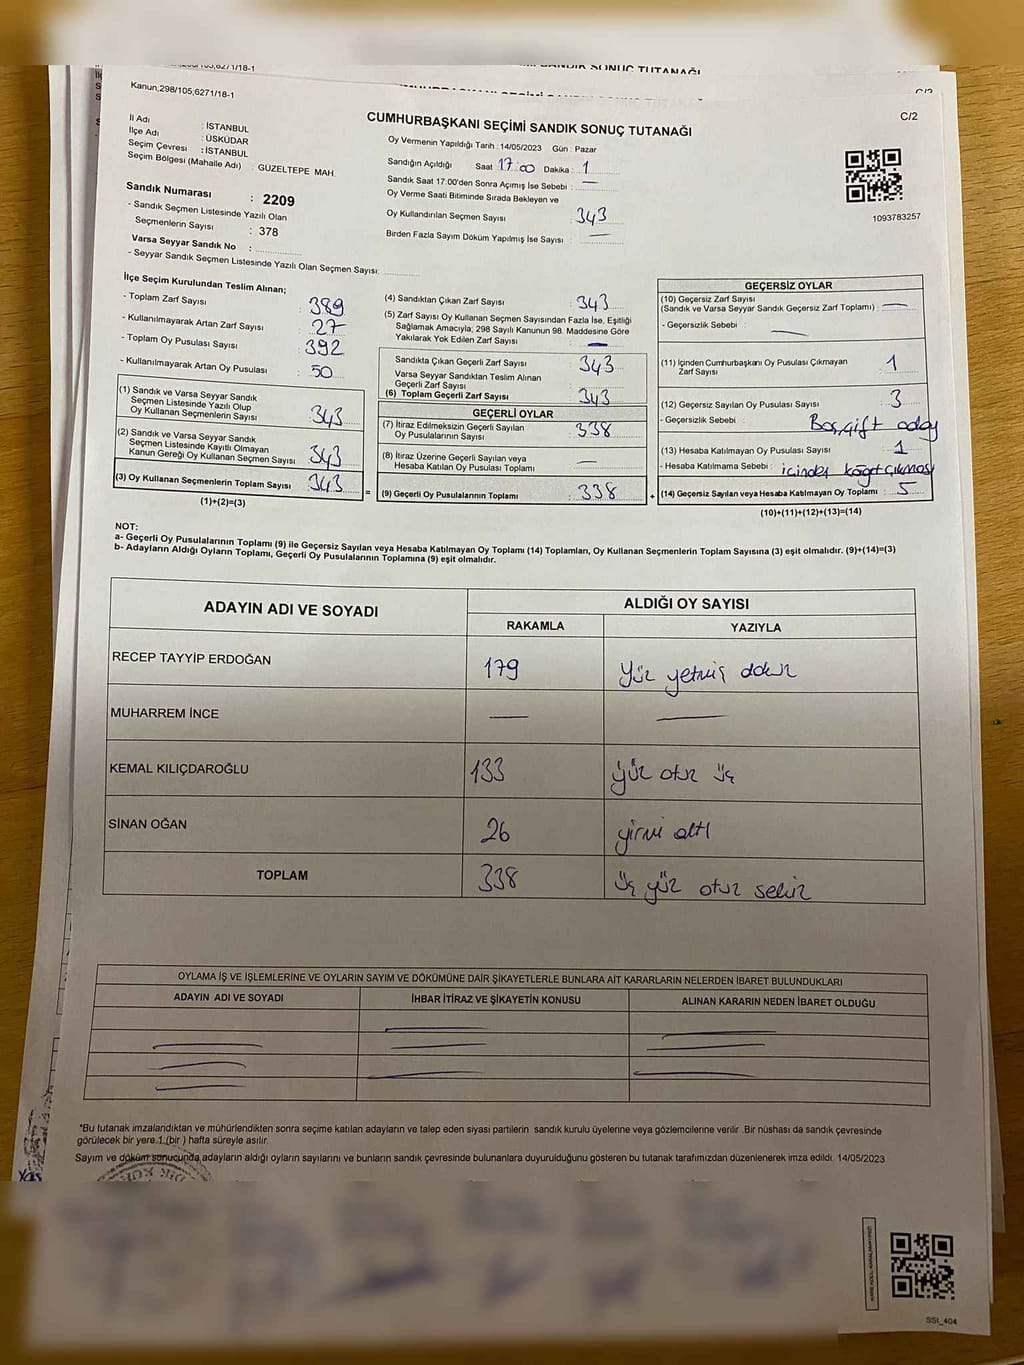 Kanun,298/105,6271/18-1
C/2
CUMHURBAŞKANI SEÇİMİ SANDIK SONUÇ TUTANAĞI
İl Adı : İSTANBUL
İlçe Adı : ÜSKÜDAR
Seçim Çevresi : İSTANBUL
Seçim Bölgesi (Mahalle Adı) : GÜZELTEPE MAH.
Sandık Numarası : 2209
- Sandık Seçmen Listesinde Yazılı Olan
Seçmenlerin Sayısı : 378
Varsa Seyyar Sandık No :
- Seyyar Sandık Seçmen Listesinde Yazılı Olan Seçmen Sayısı:
Oy Vermenin Yapıldığı Tarih : 14/05/2023 Gün : Pazar
Sandığın Açıldığı Saat 17:00 Dakika : 1
Sandık Saat 17.00'den Sonra Açımış İse Sebebi : —
Oy Verme Saati Bitiminde Sırada Bekleyen ve
Oy Kullandırılan Seçmen Sayısı : 343
Birden Fazla Sayım Döküm Yapılmış İse Sayısı : —
1093783257
İlçe Seçim Kurulundan Teslim Alınan;
- Toplam Zarf Sayısı : 389
- Kullanılmayarak Artan Zarf Sayısı : 27
- Toplam Oy Pusulası Sayısı : 392
- Kullanılmayarak Artan Oy Pusulası : 50
(1) Sandık ve Varsa Seyyar Sandık
Seçmen Listesinde Yazılı Olup
Oy Kullanan Seçmenlerin Sayısı : 343
(2) Sandık ve Varsa Seyyar Sandık
Seçmen Listesinde Kayıtlı Olmayan
Kanun Gereği Oy Kullanan Seçmen Sayısı : 343
(3) Oy Kullanan Seçmenlerin Toplam Sayısı : 343
(1)+(2)=(3)
=
(4) Sandıktan Çıkan Zarf Sayısı : 343
(5) Zarf Sayısı Oy Kullanan Seçmen Sayısından Fazla İse, Eşitliği
Sağlamak Amacıyla; 298 Sayılı Kanunun 98. Maddesine Göre
Yakılarak Yok Edilen Zarf Sayısı : —
Sandıkta Çıkan Geçerli Zarf Sayısı : 343
Varsa Seyyar Sandıktan Teslim Alınan
Geçerli Zarf Sayısı :
(6) Toplam Geçerli Zarf Sayısı : 343
GEÇERLİ OYLAR
(7) İtiraz Edilmeksizin Geçerli Sayılan
Oy Pusulalarının Sayısı : 338
(8) İtiraz Üzerine Geçerli Sayılan veya
Hesaba Katılan Oy Pusulası Toplamı : —
(9) Geçerli Oy Pusulalarının Toplamı : 338
+
GEÇERSİZ OYLAR
(10) Geçersiz Zarf Sayısı
(Sandık ve Varsa Seyyar Sandık Geçersiz Zarf Toplamı) : —
- Geçersizlik Sebebi : —
(11) İçinden Cumhurbaşkanı Oy Pusulası Çıkmayan
Zarf Sayısı : 1
(12) Geçersiz Sayılan Oy Pusulası Sayısı : 3
- Geçersizlik Sebebi : Boş, çift aday
(13) Hesaba Katılmayan Oy Pusulası Sayısı : 1
- Hesaba Katılmama Sebebi : içinden kağıt çıkması
(14) Geçersiz Sayılan veya Hesaba Katılmayan Oy Toplamı : 5
(10)+(11)+(12)+(13)=(14)
NOT:
a- Geçerli Oy Pusulalarının Toplamı (9) ile Geçersiz Sayılan veya Hesaba Katılmayan Oy Toplamı (14) Toplamları, Oy Kullanan Seçmenlerin Toplam Sayısına (3) eşit olmalıdır. (9)+(14)=(3)
b- Adayların Aldığı Oyların Toplamı, Geçerli Oy Pusulalarının Toplamına (9) eşit olmalıdır.
ADAYIN ADI VE SOYADI ALDIĞI OY SAYISI
RAKAMLA YAZIYLA
RECEP TAYYİP ERDOĞAN 179 yüz yetmiş dokuz
MUHARREM İNCE — —
KEMAL KILIÇDAROĞLU 133 yüz otuz üç
SİNAN OĞAN 26 yirmi altı
TOPLAM 338 üç yüz otuz sekiz
OYLAMA İŞ VE İŞLEMLERİNE VE OYLARIN SAYIM VE DÖKÜMÜNE DAİR ŞİKAYETLERLE BUNLARA AİT KARARLARIN NELERDEN İBARET BULUNDUKLARI
ADAYIN ADI VE SOYADI İHBAR İTİRAZ VE ŞİKAYETİN KONUSU ALINAN KARARIN NEDEN İBARET OLDUĞU
*Bu tutanak imzalandıktan ve mühürlendikten sonra seçime katılan adayların ve talep eden siyasi partilerin sandık kurulu üyelerine veya gözlemcilerine verilir. Bir nüshası da sandık çevresinde
görülecek bir yere 1 (bir) hafta süreyle asılır.
Sayım ve döküm sonucunda adayların aldığı oyların sayılarını ve bunların sandık çevresinde bulunanlara duyurulduğunu gösteren bu tutanak tarafımızdan düzenlenerek imza edildi. 14/05/2023
SSI_404